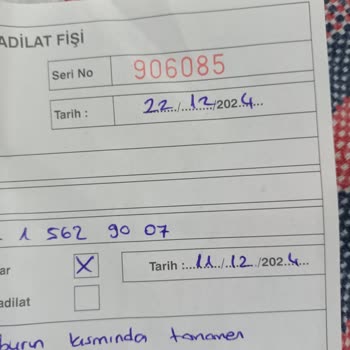 ADİLAT FİŞİ
Seri No 906085
Tarih : 22/12/2024
1 562 90 07
ar X Tarih :11/12/2024
adilat
burun kısmında tamamen